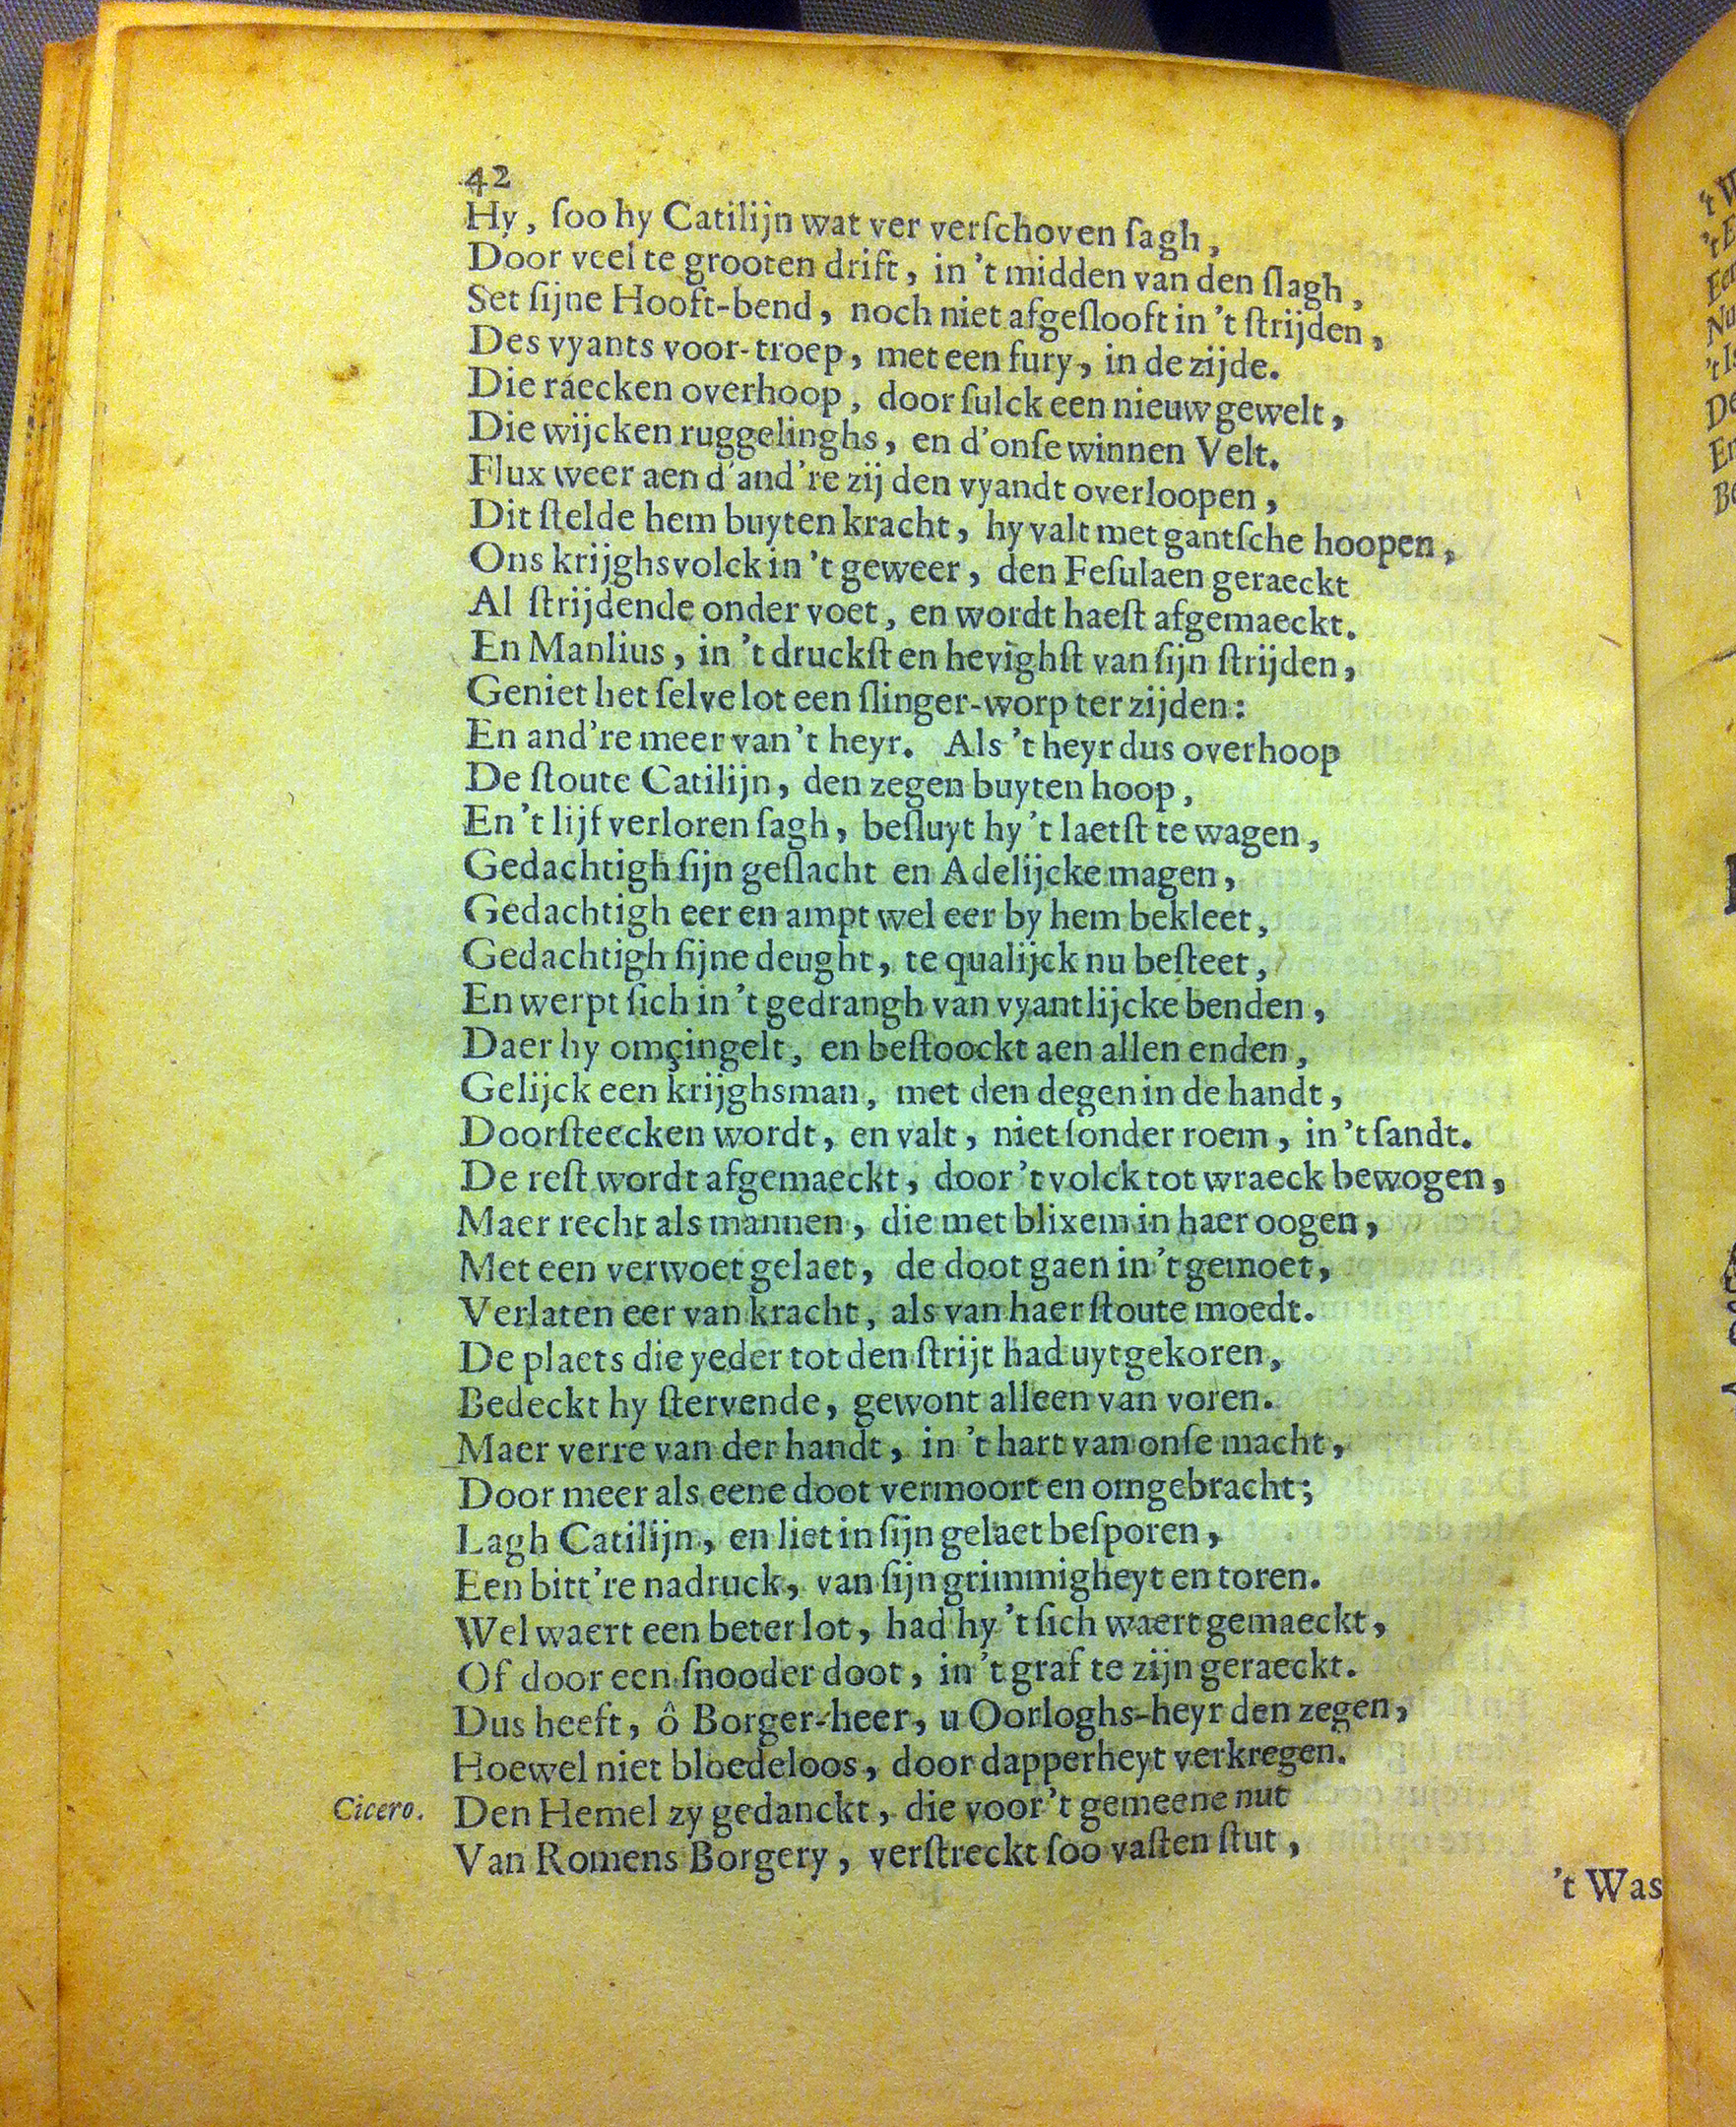 42
Hy, ſoo hy Catilijn wat ver verſchoven ſagh,
Door veel te grooten drift, in 't midden van den ſlagh,
Set ſijne Hooft-bend, noch niet afgeſlooft in 't ſtrijden,
Des vyants voor-troep, met een fury, in de zijde.
Die ráecken overhoop, door ſulck een nieuw gewelt,
Die wijcken ruggelinghs, en d'onſe winnen Velt.
Flux weer aen d'and're zij den vyandt overloopen,
Dit ſtelde hem buyten kracht, hy valt met gantſche hoopen,
Ons krijghsvolck in 't geweer, den Feſulaen geraeckt
Al ſtrijdende onder voet, en wordt haeſt afgemaeckt.
En Manlius, in 't druckſt en hevighſt van ſijn ſtrijden,
Geniet het ſelve lot een ſlinger-worp ter zijden:
En and're meer van 't heyr. Als 't heyr dus overhoop
De ſtoute Catilijn, den zegen buyten hoop,
En 't lijf verloren ſagh, beſluyt hy 't laetſt te wagen,
Gedachtigh ſijn geſlacht en Adelijcke magen,
Gedachtigh eer en ampt wel eer by hem bekleet,
Gedachtigh ſijne deught, te qualijck nu beſteet,
En werpt ſich in 't gedrangh van vyantlijcke benden,
Daer hy omçingelt, en beſtoockt aen allen enden,
Gelijck een krijghsman, met den degen in de handt,
Doorſteecken wordt, en valt, niet ſonder roem, in 't ſandt.
De reſt wordt afgemaeckt, door 't volck tot wraeck bewogen,
Maer recht als mannen, die met blixem in haer oogen,
Met een verwoet gelaet, de doot gaen in 't gemoet,
Verlaten eer van kracht, als van haer ſtoute moedt.
De plaets die yeder tot den ſtrijt had uytgekoren,
Bedeckt hy ſtervende, gewont alleen van voren.
Maer verre van der handt, in 't hart van onſe macht,
Door meer als eene doot vermoort en omgebracht;
Lagh Catilijn, en liet in ſijn gelaet beſporen,
Een bitt're nadruck, van ſijn grimmigheyt en toren.
Wel waert een beter lot, had hy 't ſich waert gemaeckt,
Of door een ſnooder doot, in 't graf te zijn geraeckt.
Dus heeft, ô Borger-heer, u Oorloghs-heyr den zegen,
Hoewel niet bloedeloos, door dapperheyt verkregen.
Cicero. Den Hemel zy gedanckt, die voor 't gemeene nut
Van Romens Borgery, verſtreckt ſoo vaſten ſtut,
't Was